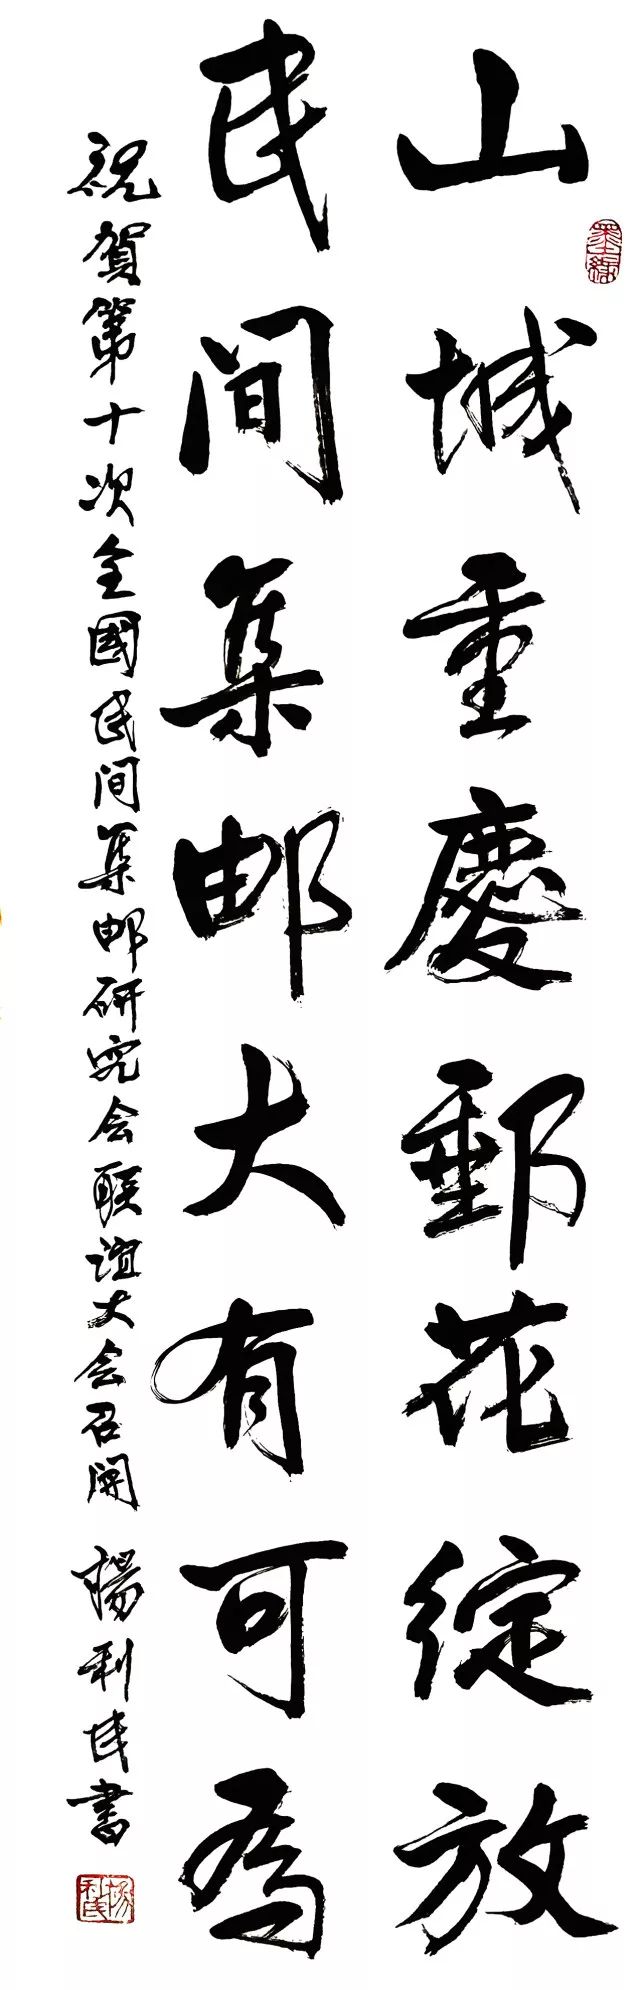 山城重慶郵花綻放
民间集邮大有可為
祝贺第十次全國民间集邮研究会联谊大会召開 楊利民書
墨缘
楊利民